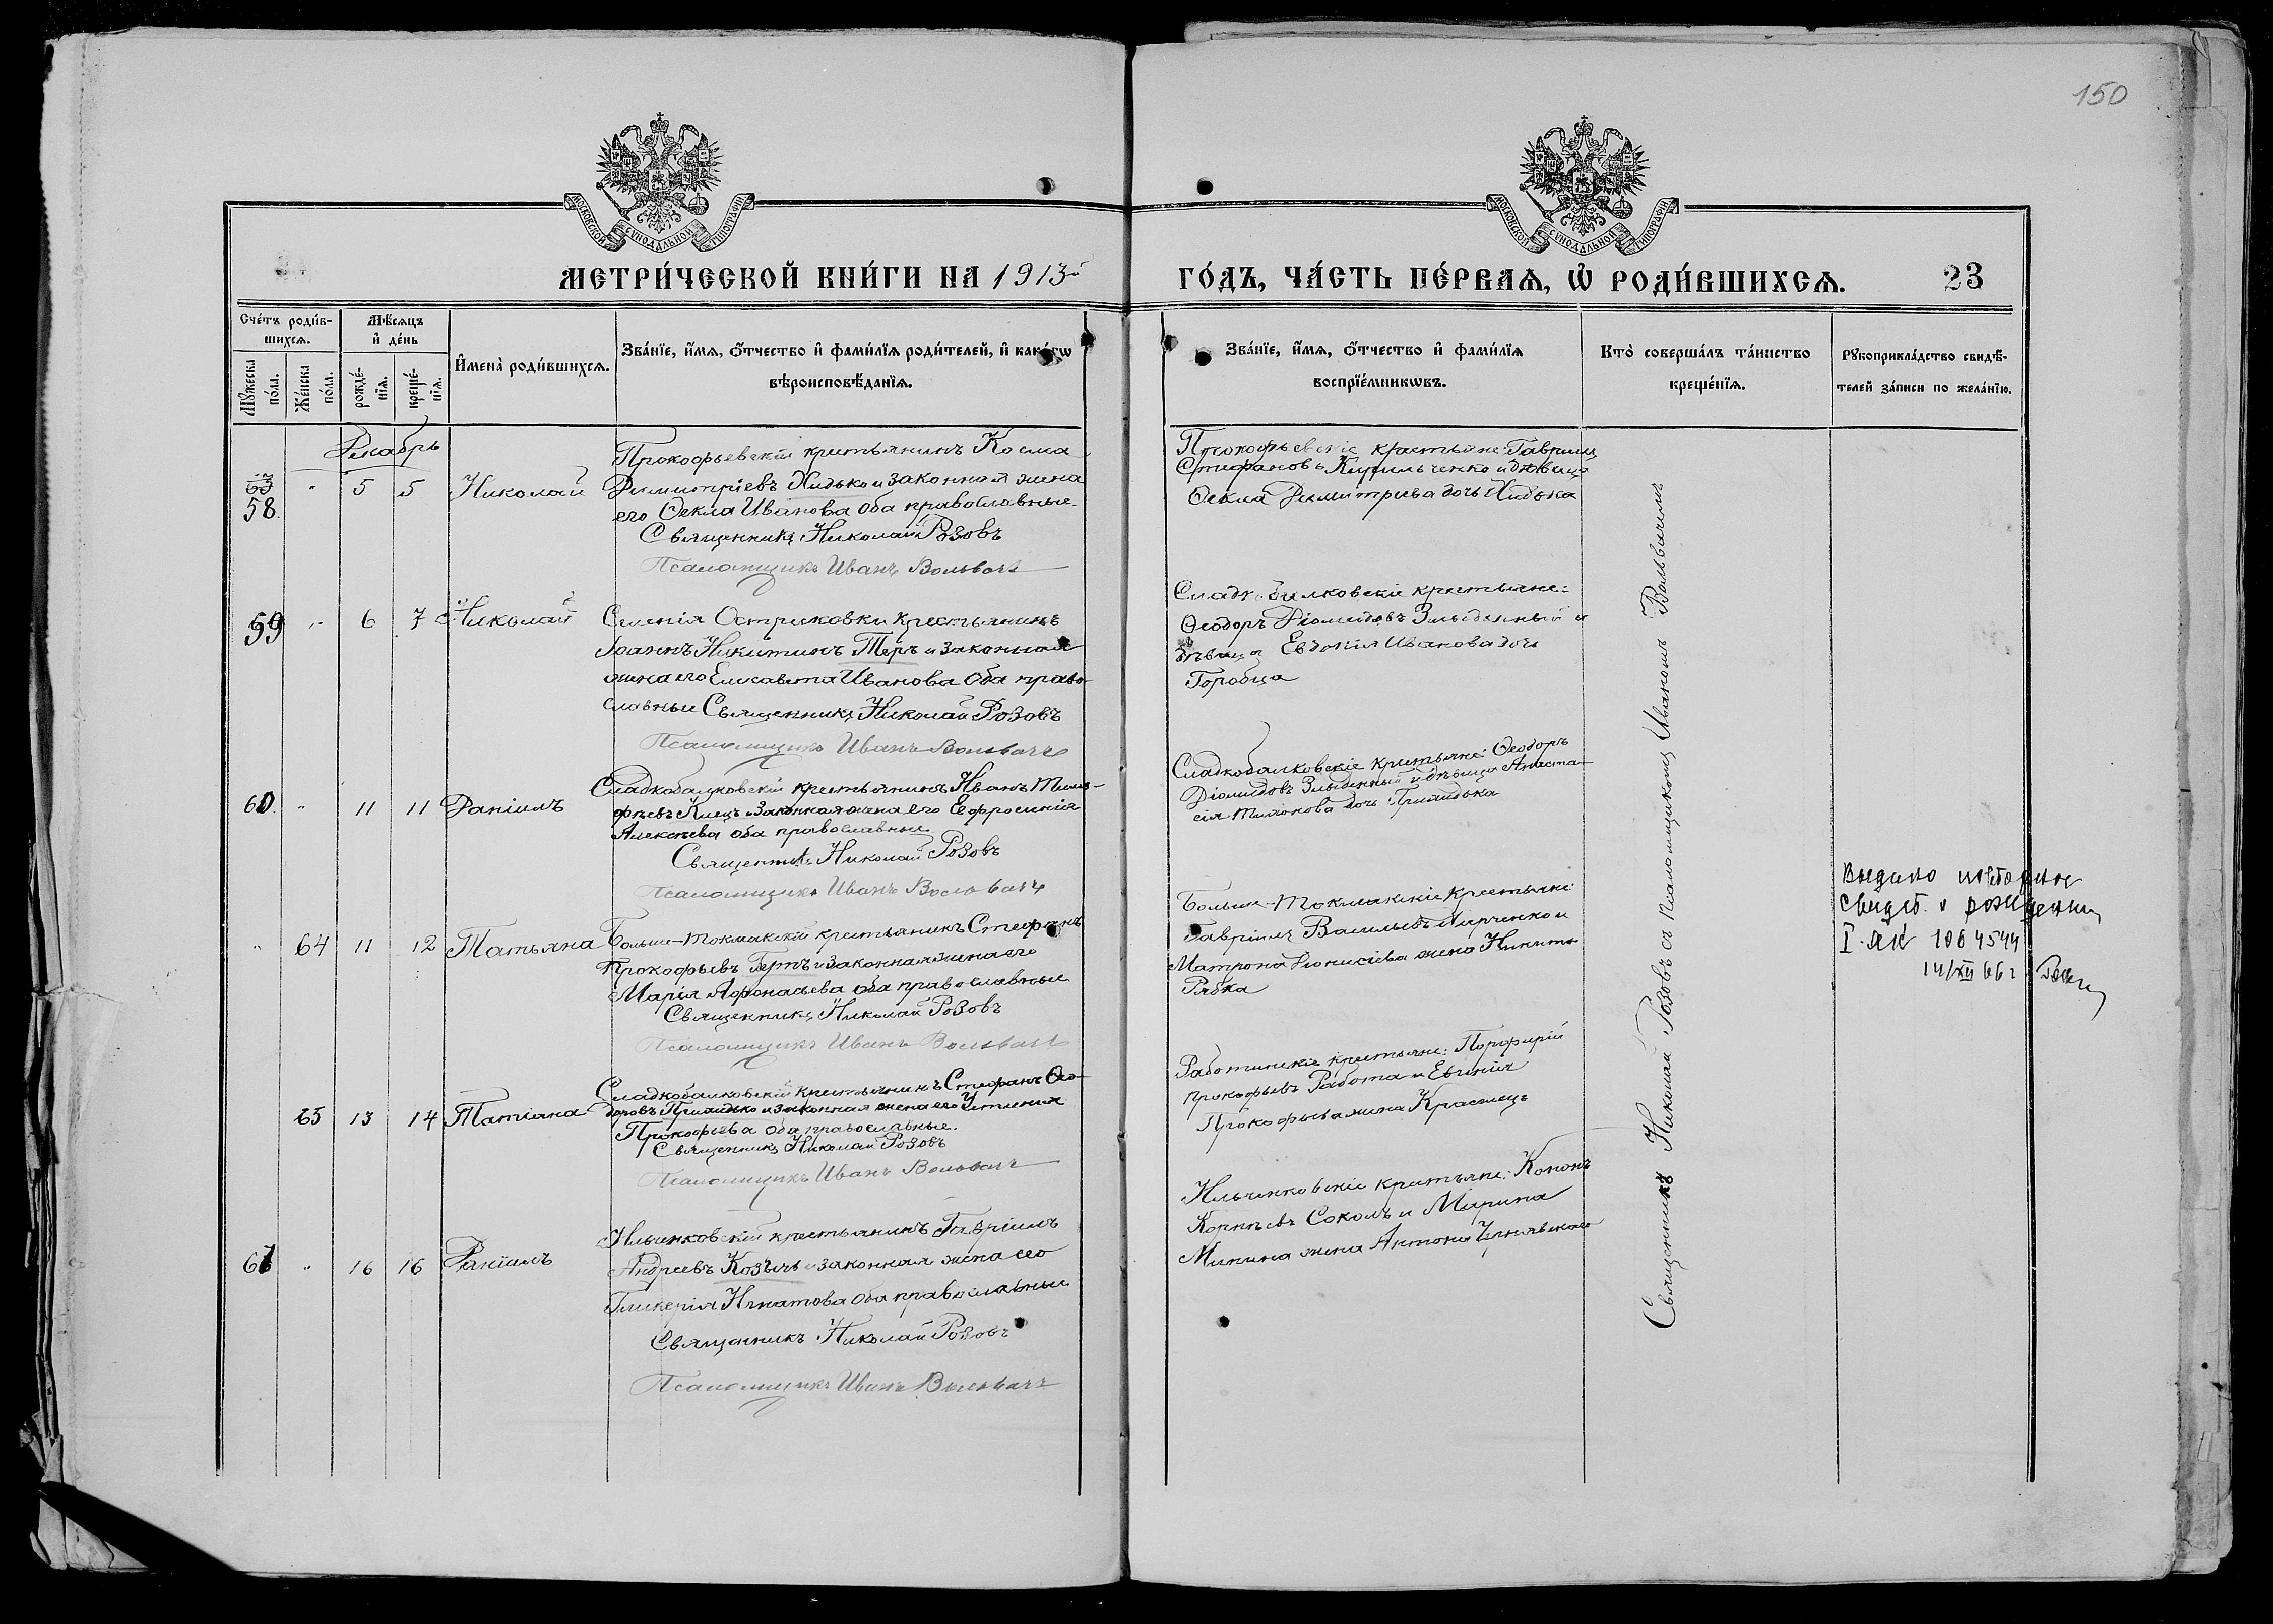 150
МОСКОВСКОЙ СѴНОДАЛЬНОЙ ТИПОГРАФІИ
МОСКОВСКОЙ СѴНОДАЛЬНОЙ ТИПОГРАФІИ
МЕТРИ́ЧЕСКОЙ КНИ́ГИ НА 1913й ГО́ДЪ, ЧА́СТЬ ПЕ́РВАѦ, Ѡ҆ РОДИ́ВШИХСѦ. 23
Сче́тъ роди́в-
шихсѧ.
Мꙋжеска по́ла.
Же́нска по́ла.
Мѣ́сѧцъ и҆ де́нь
рожде́-нїѧ.
креще́-нїѧ.
И҆мена̀ роди́вшихсѧ.
Зва́нїе, и҆́мѧ, ѻ҆́тчество и҆ фами́лїѧ роди́телей, и҆ како́гѡ
вѣроисповѣ́данїѧ.
Зва́нїе, и҆́мѧ, ѻ҆́тчество и҆ фами́лїѧ
воспрїе́мникѡвъ.
Кто̀ соверша́лъ та́инство
креще́нїѧ.
Рꙋкоприкла́дство свидѣ́-
телей за́писи по жела́нїю.
Декабрь
58. " 5 5 Николай
Прокофьевскій крестьянинъ Косма
Димитріевъ Хидько и законная жена
его Ѳекла Иванова оба православные.
Священникъ Николай Розовъ
Псаломщикъ Иванъ Вольвачъ
Прокофьевскіе крестьяне: Гавріилъ
Стефановъ Кирильченко и дѣвица
Ѳекла Димитріева дочь Хидька
59 " 6 7 Николай
Селенія Остриковки крестьянинъ
Іоаннъ Никитинъ Теръ и законная
жена его Елисавета Иванова оба право-
славные Священникъ Николай Розовъ
Псаломщикъ Иванъ Вольвачъ
Сладкобалковскіе крестьяне:
Ѳеодоръ Діомидовъ Злыденный и
дѣвица Евдокія Иванова дочь
Горобца
60. " 11 11 Даніилъ
Сладкобалковскій крестьянинъ Иванъ Тимо-
фѣевъ Клецъ и законная жена его Евфросинія
Алексѣева оба православные
Священникъ Николай Розовъ
Псаломщикъ Иванъ Вольвачъ
Сладкобалковскіе крестьяне Ѳеодоръ
Діомидовъ Злыденный и дѣвица Анаста-
сія Тимонова дочь Приймдька
" 64 11 12 Татьяна
Больше-Токмакскій крестьянинъ Стефанъ
Прокофьевъ Гертъ и законная жена его
Марія Афонасьева оба православные
Священникъ Николай Розовъ
Псаломщикъ Иванъ Вольвачъ
Больше-Токмакскіе крестьяне:
Гавріилъ Васильевъ Ларченко и
Матрона Діонисіева жена Никиты
Рябка
Выдано повторное
свидет. о рождении
I-ЯК 1064544
14/XII 66 г
65 13 14 Татіана
Сладкобалковскій крестьянинъ Стефанъ Ѳео-
доровъ Приймдько и законная жена его Устинія
Прокофьева оба православные.
Священникъ Николай Розовъ
Псаломщикъ Иванъ Вольвачъ
Работинскіе крестьяне: Порфирій
Прокофьевъ Работа и Евгенія
Прокофьева жена Красмецъ
61 " 16 16 Даніилъ
Ильченковскій крестьянинъ Гавріилъ
Андреевъ Козычъ и законная жена его
Гликерія Игнатова оба православные
Священникъ Николай Розовъ
Псаломщикъ Иванъ Вольвачъ
Ильченковскіе крестьяне: Кононъ
Корнѣевъ Соколъ и Марина
Минина жена Антонія Чернявскаго
Священникъ Николай Розовъ съ псаломщикомъ Иваномъ Вольвачемъ